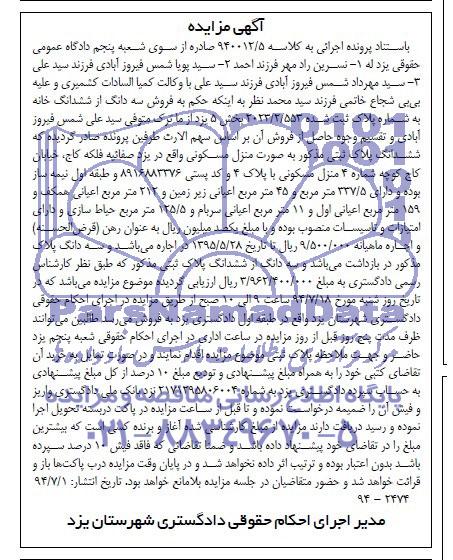 آگهی مزایده
باستناد پرونده اجرائی به کلاسه ۹۴۰۰۱۲/۵ صادره از سوی شعبه پنجم دادگاه عمومی
حقوقی یزد له ۱- نسرین راد مهر فرزند احمد ۲- سید پویا شمس فیروز آبادی فرزند سید علی
۳- سید مهرداد شمس فیروز آبادی فرزند سید علی با وکالت کمیا السادات کشمیری و علیه
بی‌بی شجاع خاتمی فرزند سید محمد نظر به اینکه حکم به فروش سه دانگ از ششدانگ خانه
به شماره پلاک ثبت شده ۲۰۲۳/۲/۵۵۳ بخش ۵ یزد از ماترک متوفی سید علی شمس فیروز
آبادی و تقسیم وجوه حاصل از فروش آن بر اساس سهم الارث طرفین پرونده صادر گردیده که
ششدانگ پلاک ثبتی مذکور به صورت منزل مسکونی واقع در یزد صفائیه فلکه کاج، خیابان
کاج کوچه شماره ۴ منزل مسکونی با پلاک ۴ و کد پستی ۸۹۱۶۸۸۳۳۷۶ و طبقه اول نیمه ساز
دارای ۳۳۷/۵ متر مربع و ۴۵ متر مربع اعیانی زیر زمین و ۲۱۲ متر مربع اعیانی همکف و
۱۵۹ متر مربع اعیانی اول و ۱۱ متر مربع اعیانی سربام و ۱۲۵/۵ متر مربع حیاط سازی و دارای
امتیازات و تاسیسات منصوب بوده و با مبلغ یکصد میلیون ریال به عنوان رهن (قرض‌الحسنه)
و اجاره ماهیانه ۹/۵۰۰/۰۰۰ ریال تا تاریخ ۱۳۹۵/۵/۲۸ در اجاره می‌باشد و سه دانگ پلاک
مذکور در بازداشت می‌باشد و سه دانگ از ششدانگ پلاک ثبتی مذکور که طبق نظر کارشناس
رسمی دادگستری به مبلغ ۳/۹۶۲/۴۰۰/۰۰۰ ریال ارزیابی گردیده موضوع مزایده می‌باشد که در
تاریخ روز شنبه مورخ ۹۴/۷/۱۸ ساعت ۹ الی ۱۰ صبح از طریق مزایده در اجرای احکام حقوقی
دادگستری شهرستان یزد واقع در طبقه اول دادگستری یزد به فروش می‌رسد طالبین می‌توانند
ظرف مدت پنج روز قبل از روز مزایده در ساعت اداری در اجرای احکام حقوقی شعبه پنجم یزد
حاضر و جهت ملاحظه پلاک ثبتی موضوع مزایده اقدام نمایند و در صورت تمایل به خرید آن
تقاضای کتبی خود را به همراه مبلغ پیشنهادی و تودیع مبلغ ۱۰ درصد از کل مبلغ پیشنهادی
به حساب سپرده دادگستری یزد به شماره ۲۱۷۱۲۹۵۸۰۶۰۰۴ نزد بانک ملی دادگستری واریز
و فیش آن را ضمیمه درخواست نموده و تا قبل از ساعت مزایده در پاکت دربسته تحویل اجرا
نموده و رسید دریافت دارند مزایده از مبلغ کارشناسی شده آغاز و برنده کسی است که بیشترین
مبلغ را در تقاضای خود پیشنهاد داده باشد و ضمناً تقاضائی که فاقد فیش ۱۰ درصد سپرده
باشد بدون اعتبار بوده و ترتیب اثر داده نخواهد شد و در پایان وقت مزایده درب پاکت‌ها باز و
قرائت خواهد شد و حضور متقاضیان در جلسه مزایده بلامانع خواهد بود. تاریخ انتشار: ۹۴/۷/۱
۲۴۷۴ - ۹۴
مدیر اجرای احکام حقوقی دادگستری شهرستان یزد
پایگاه اطلاع رسانی مناقصه و مزایده
۰۲۱-۸۸۳۴۹۶۷۰-۵